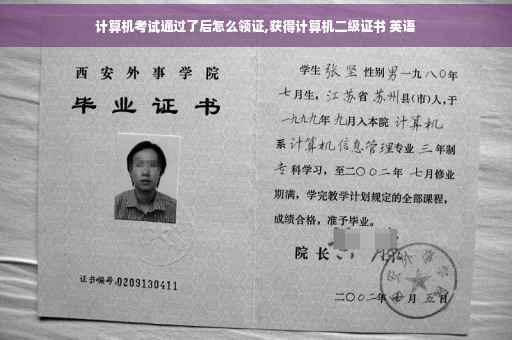 计算机考试通过了后怎么领证,获得计算机二级证书 英语
西安外事学院
毕业证书
证书编号:0209130411
学生 张坚 性别 男 一九八〇年
七月生，江苏省 苏州县(市)人，于
一九九九年 九月入本院 计算机
系 计算机信息管理专业 三 年制
专科学习，至二〇〇二年 七月修业
期满，学完教学计划规定的全部课程，
成绩合格，准予毕业。
院长
二〇〇二年 七月五日